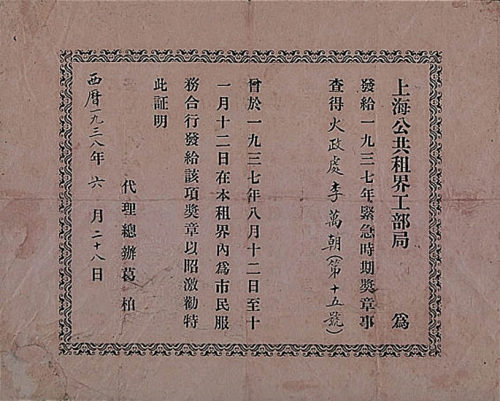 上海公共租界工部局　為
發給一九三七年緊急時期獎章事
查得火政處李萬朝(第十五號)
曾於一九三七年八月十二日至十
一月十二日在本租界內爲市民服
務合行發給該項獎章以昭激勸特
此証明
代理總辦葛柏
西曆一九三八年六月二十八日